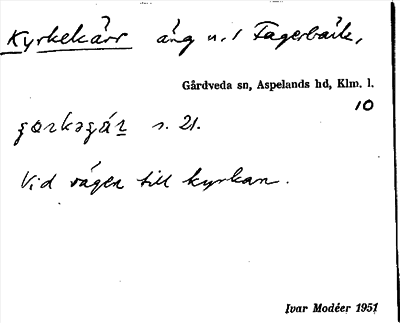 Kyrkekärr äng u. 1 Fagerbäck,
Gårdveda sn, Aspelands hd, Klm. l.
10
s. 21.
Vid vägen till kyrkan.
Ivar Modéer 1951